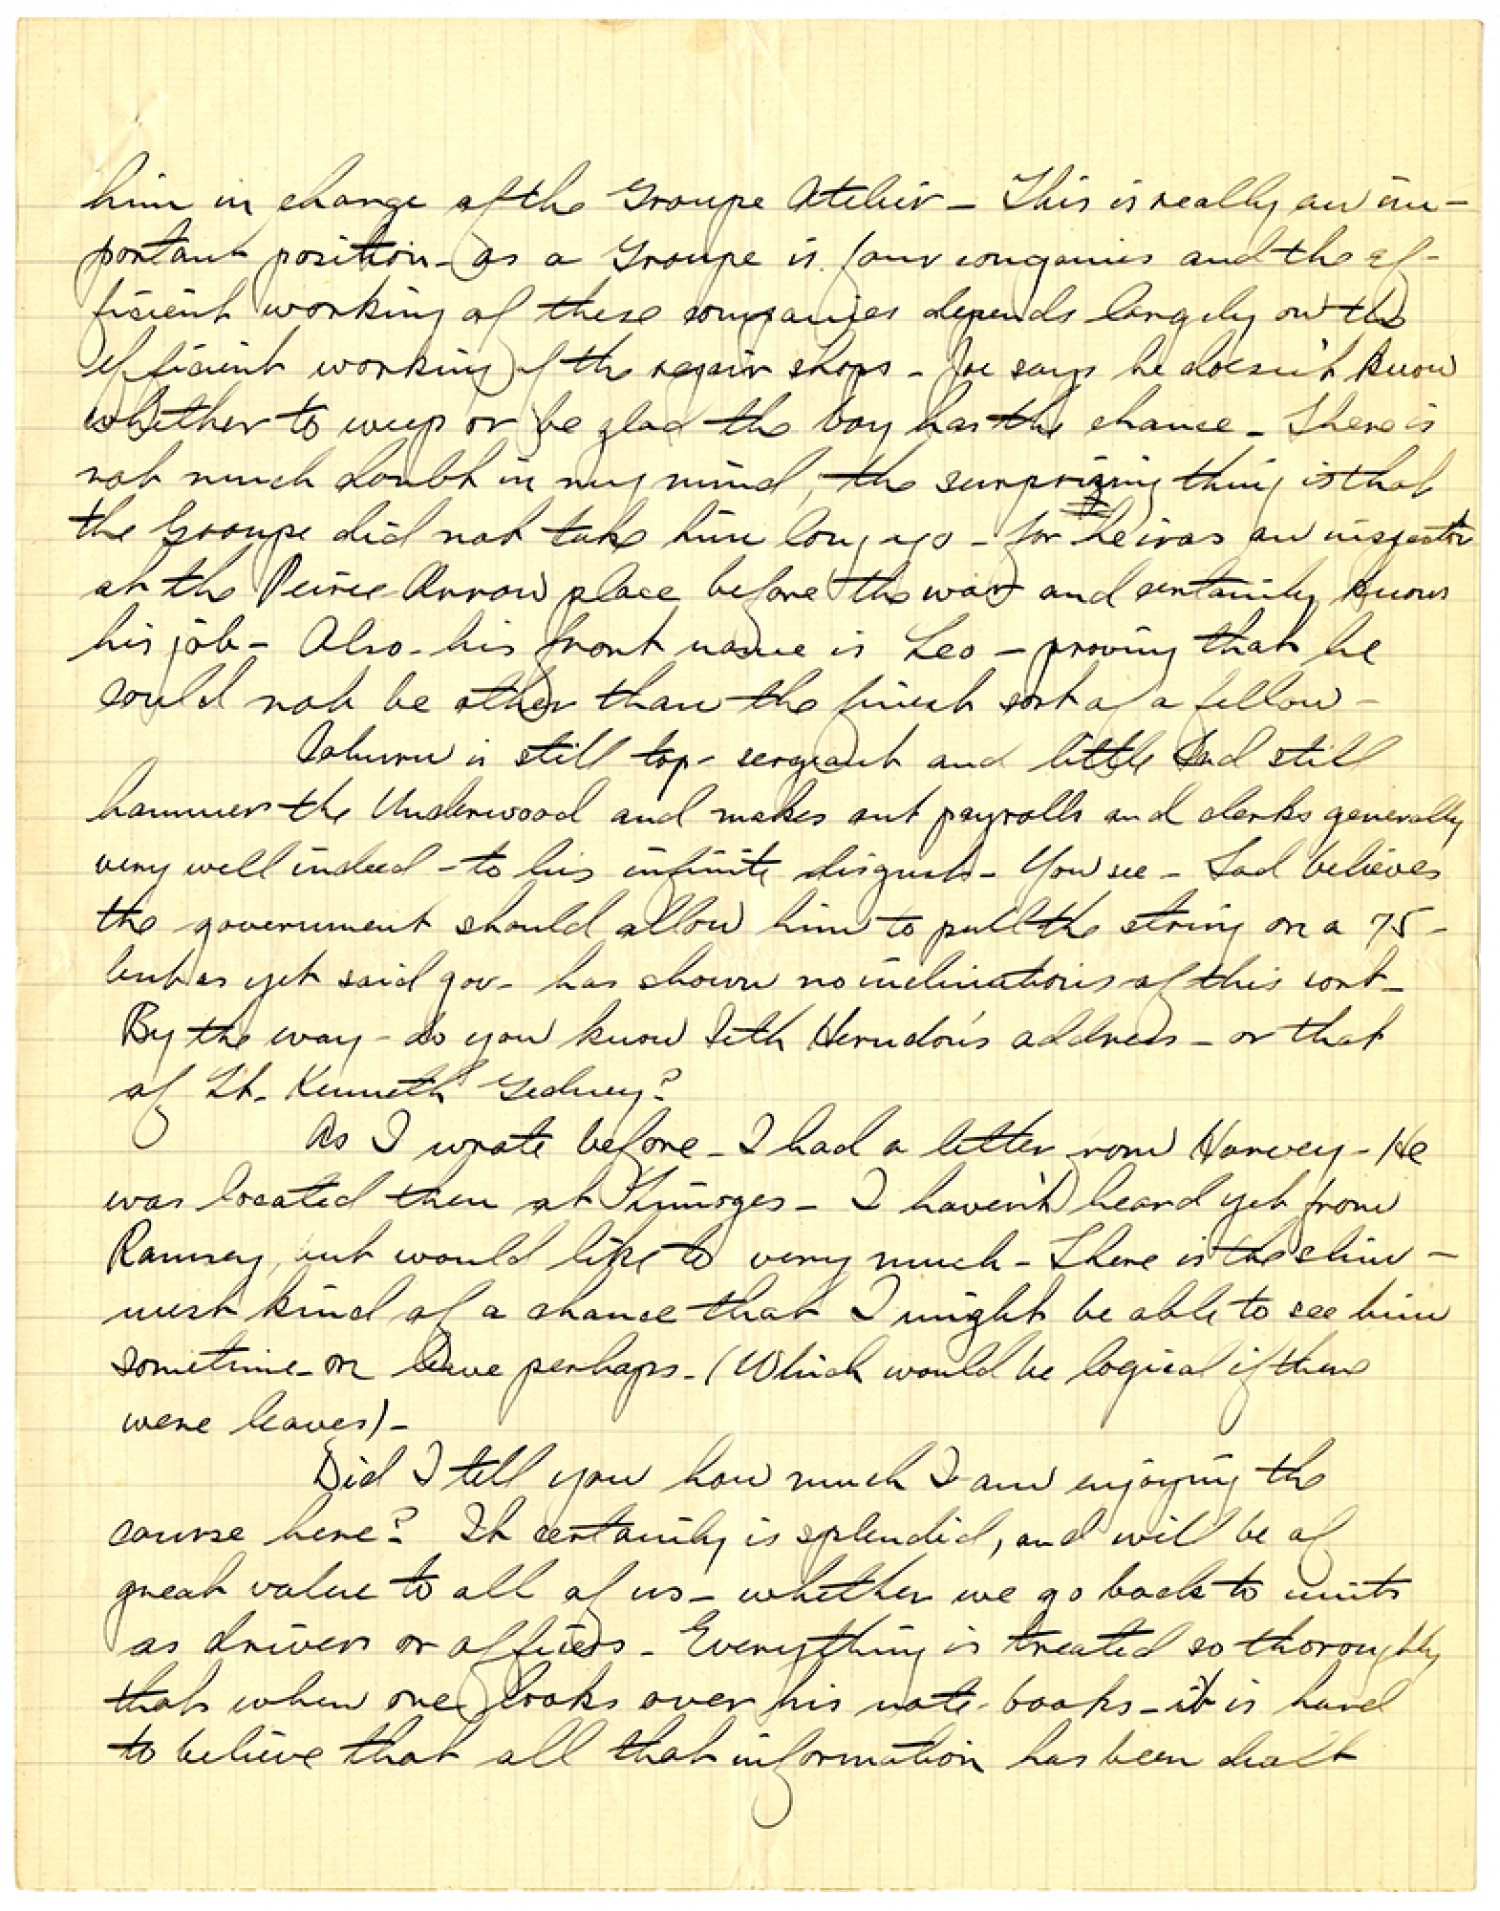 him in charge of the Groupe Atelier – This is really an im-
portant position – as a Groupe is four companies and the ef-
ficient working of these companies depends largely on the
efficient working of the repair shops – Joe says he doesn't know
whether to weep or be glad the boy has the chance – There is
not much doubt in my mind, the surprizing thing is that
the Groupe did not take him long ago – for he was an inspector
at the Peirce Arrow place before the war and certainly knows
his job – Also – his front name is Leo – proving that he
could not be other than the finest sort of a fellow –
is still top-sergeant and little Tad still
hammers the Underwood and makes out payrolls and clerks generally
very well indeed – to his infinite disgust – You see – Tad believes
the government should allow him to pull the string on a 75 –
but as yet said gov – has shown no inclinations of this sort –
By the way – do you know Seth Herndon's address – or that
of Lt. Kenneth Gedney?
As I wrote before – I had a letter from Harvey – He
was located then at Limoges – I haven't heard yet from
Ramsey, but would like to very much – There is the slim-
mest kind of a chance that I might be able to see him
sometime – on leave perhaps – (Which would be logical if there
were leaves) –
Did I tell you how much I am enjoying the
course here? It certainly is splendid, and will be of
great value to all of us – whether we go back to units
as drivers or officers – Everything is treated so thoroughly
that when one looks over his note-books – it is hard
to believe that all that information has been dealt